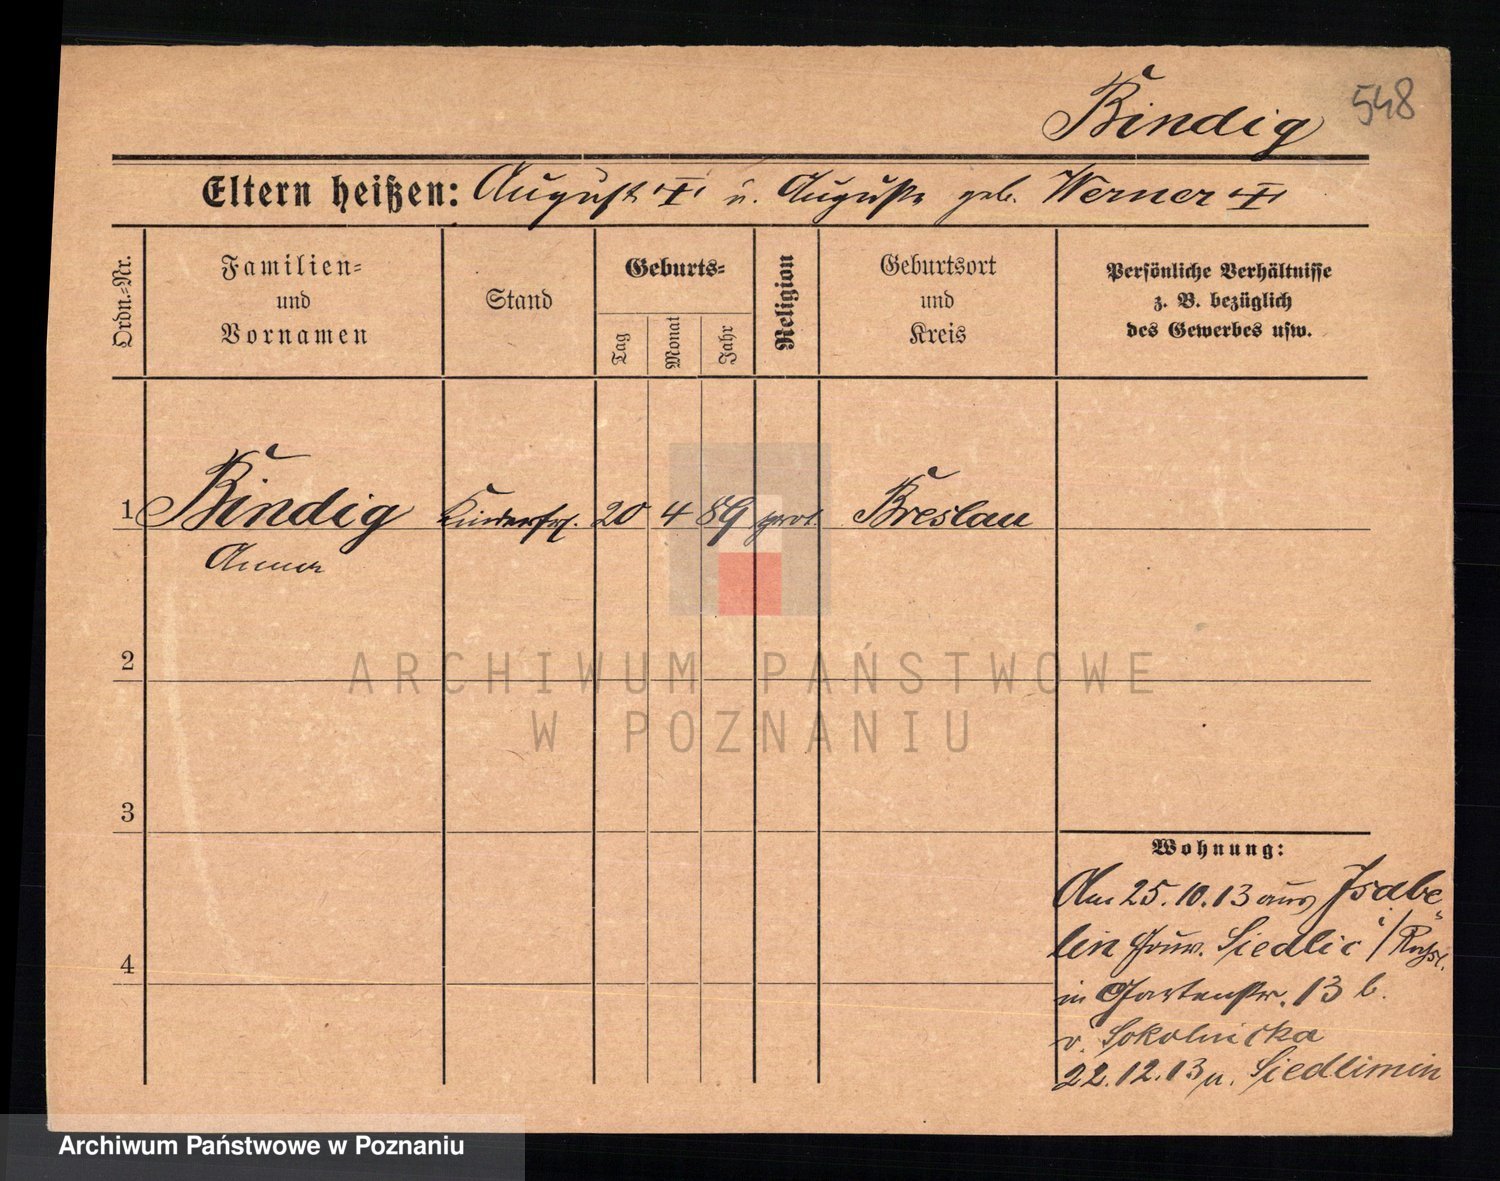 Bindig 548
Eltern heißen: August † u. Auguste geb. Werner †
Ordn.-Nr.
Familien-
und
Vornamen
Stand
Geburts-
Tag
Monat
Jahr
Religion
Geburtsort
und
Kreis
Persönliche Verhältnisse
z. B. bezüglich
des Gewerbes usw.
1 Bindig Kinderfrl. 20 4 89 prot. Breslau
Anna
2
3
4
Wohnung:
Am 25.10.13 aus Isabe-
lin Gouv. Siedlic i/Rußl.
in Gartenstr. 13 b.
v. Sokolnicka
22.12.13 n. Siedlimin
ARCHIWUM PAŃSTWOWE
W POZNANIU
Archiwum Państwowe w Poznaniu